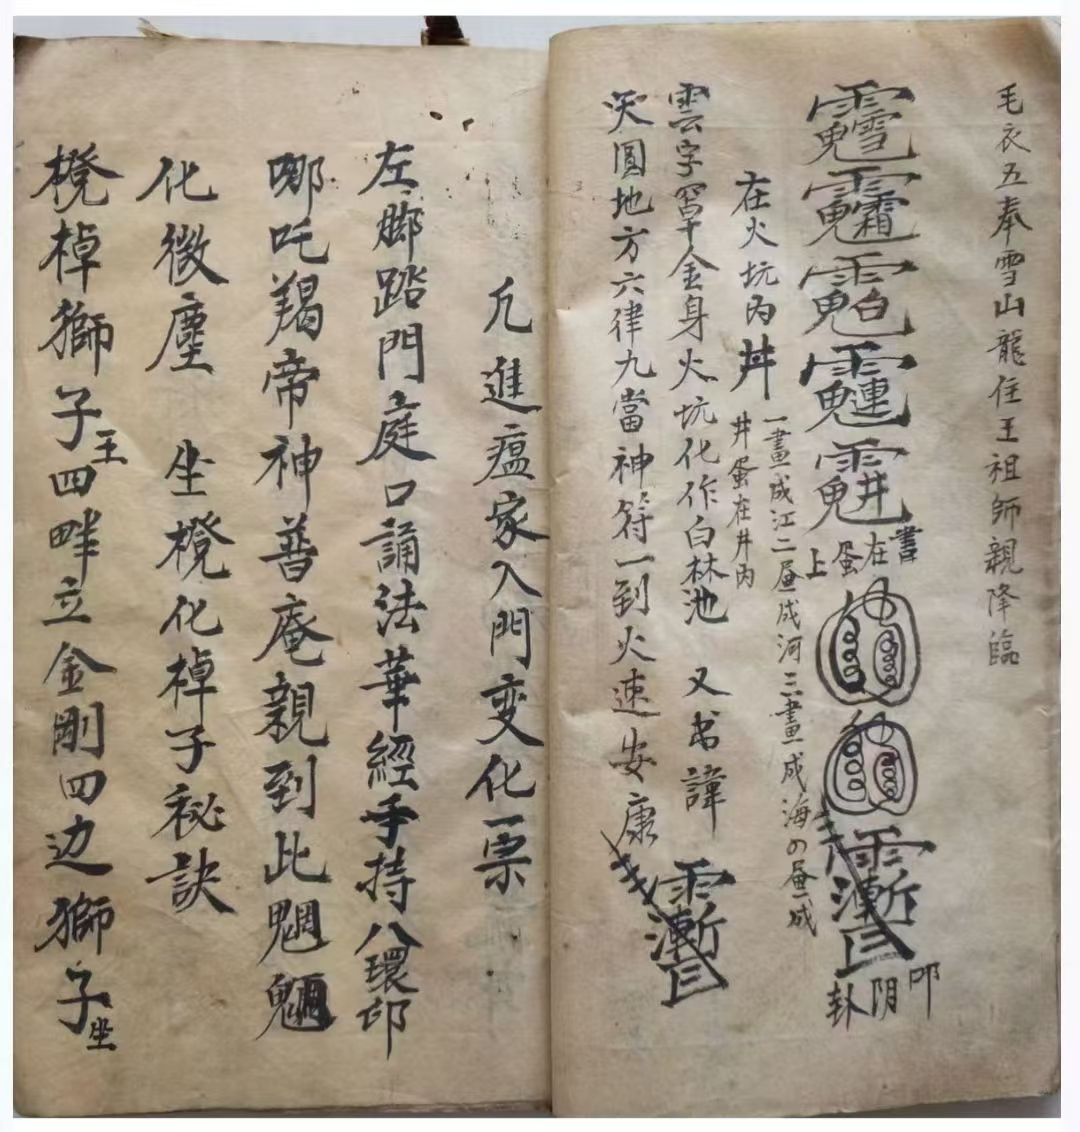 毛衣五奉雪山龍住王祖師親降臨
書在蛋上
叩阴卦
一畫成江二昼成河三畫成海の昼成
在火坑内井
井蛋在井内
雲字窂金身火坑化作白林池 又书諱
天圓地方六律九當神符一到火速安康
凡進瘟家入門変化一票
左脚踏門庭口誦法華經手持八環印
哪吒羯帝神普庵親到此魍魎
化微塵 坐櫈化棹子祕訣
櫈棹獅子王四畔立金剛四边獅子坐